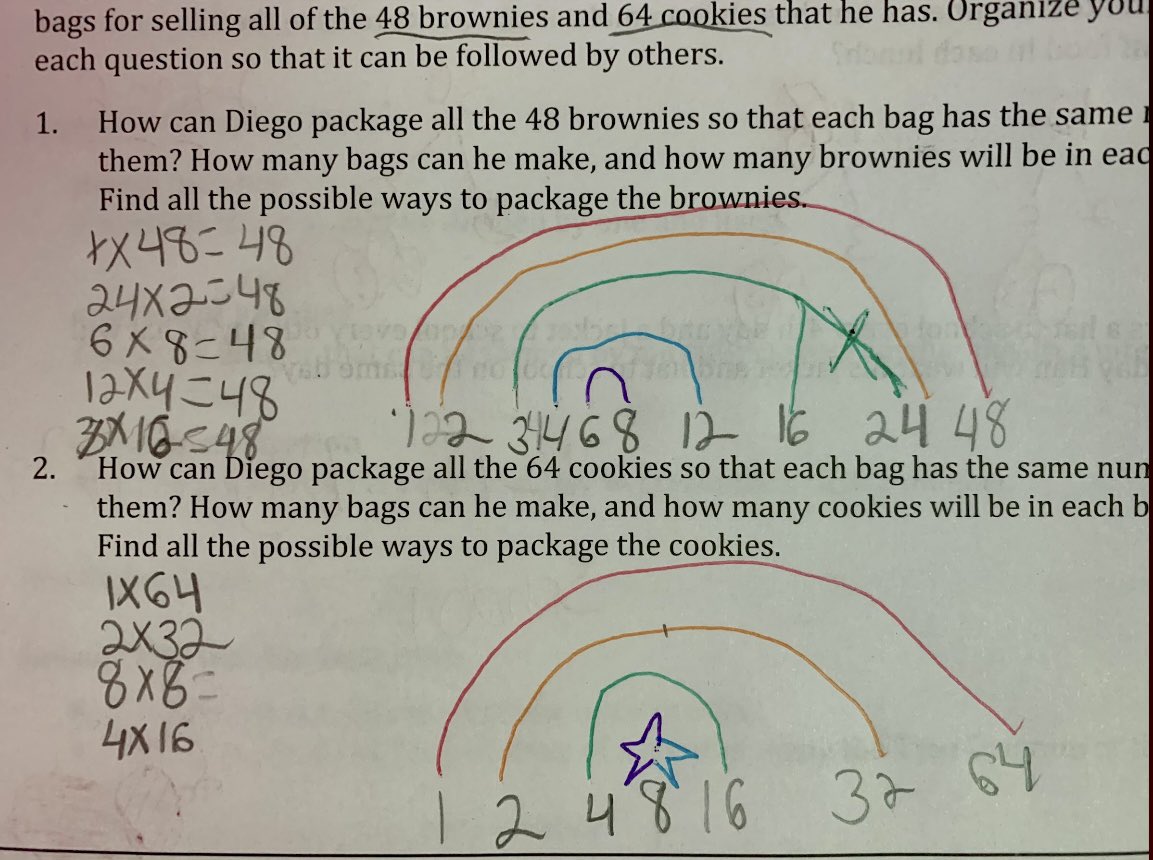 bags for selling all of the 48 brownies and 64 cookies that he has. Organize you
each question so that it can be followed by others.
1. How can Diego package all the 48 brownies so that each bag has the same
them? How many bags can he make, and how many brownies will be in eac
Find all the possible ways to package the brownies.
1x48=48
24x2=48
6x8=48
12x4=48
3x16=48
1 2 3 4 6 8 12 16 24 48
2. How can Diego package all the 64 cookies so that each bag has the same num
them? How many bags can he make, and how many cookies will be in each b
Find all the possible ways to package the cookies.
1x64
2x32
8x8=
4x16
1 2 4 8 16 32 64